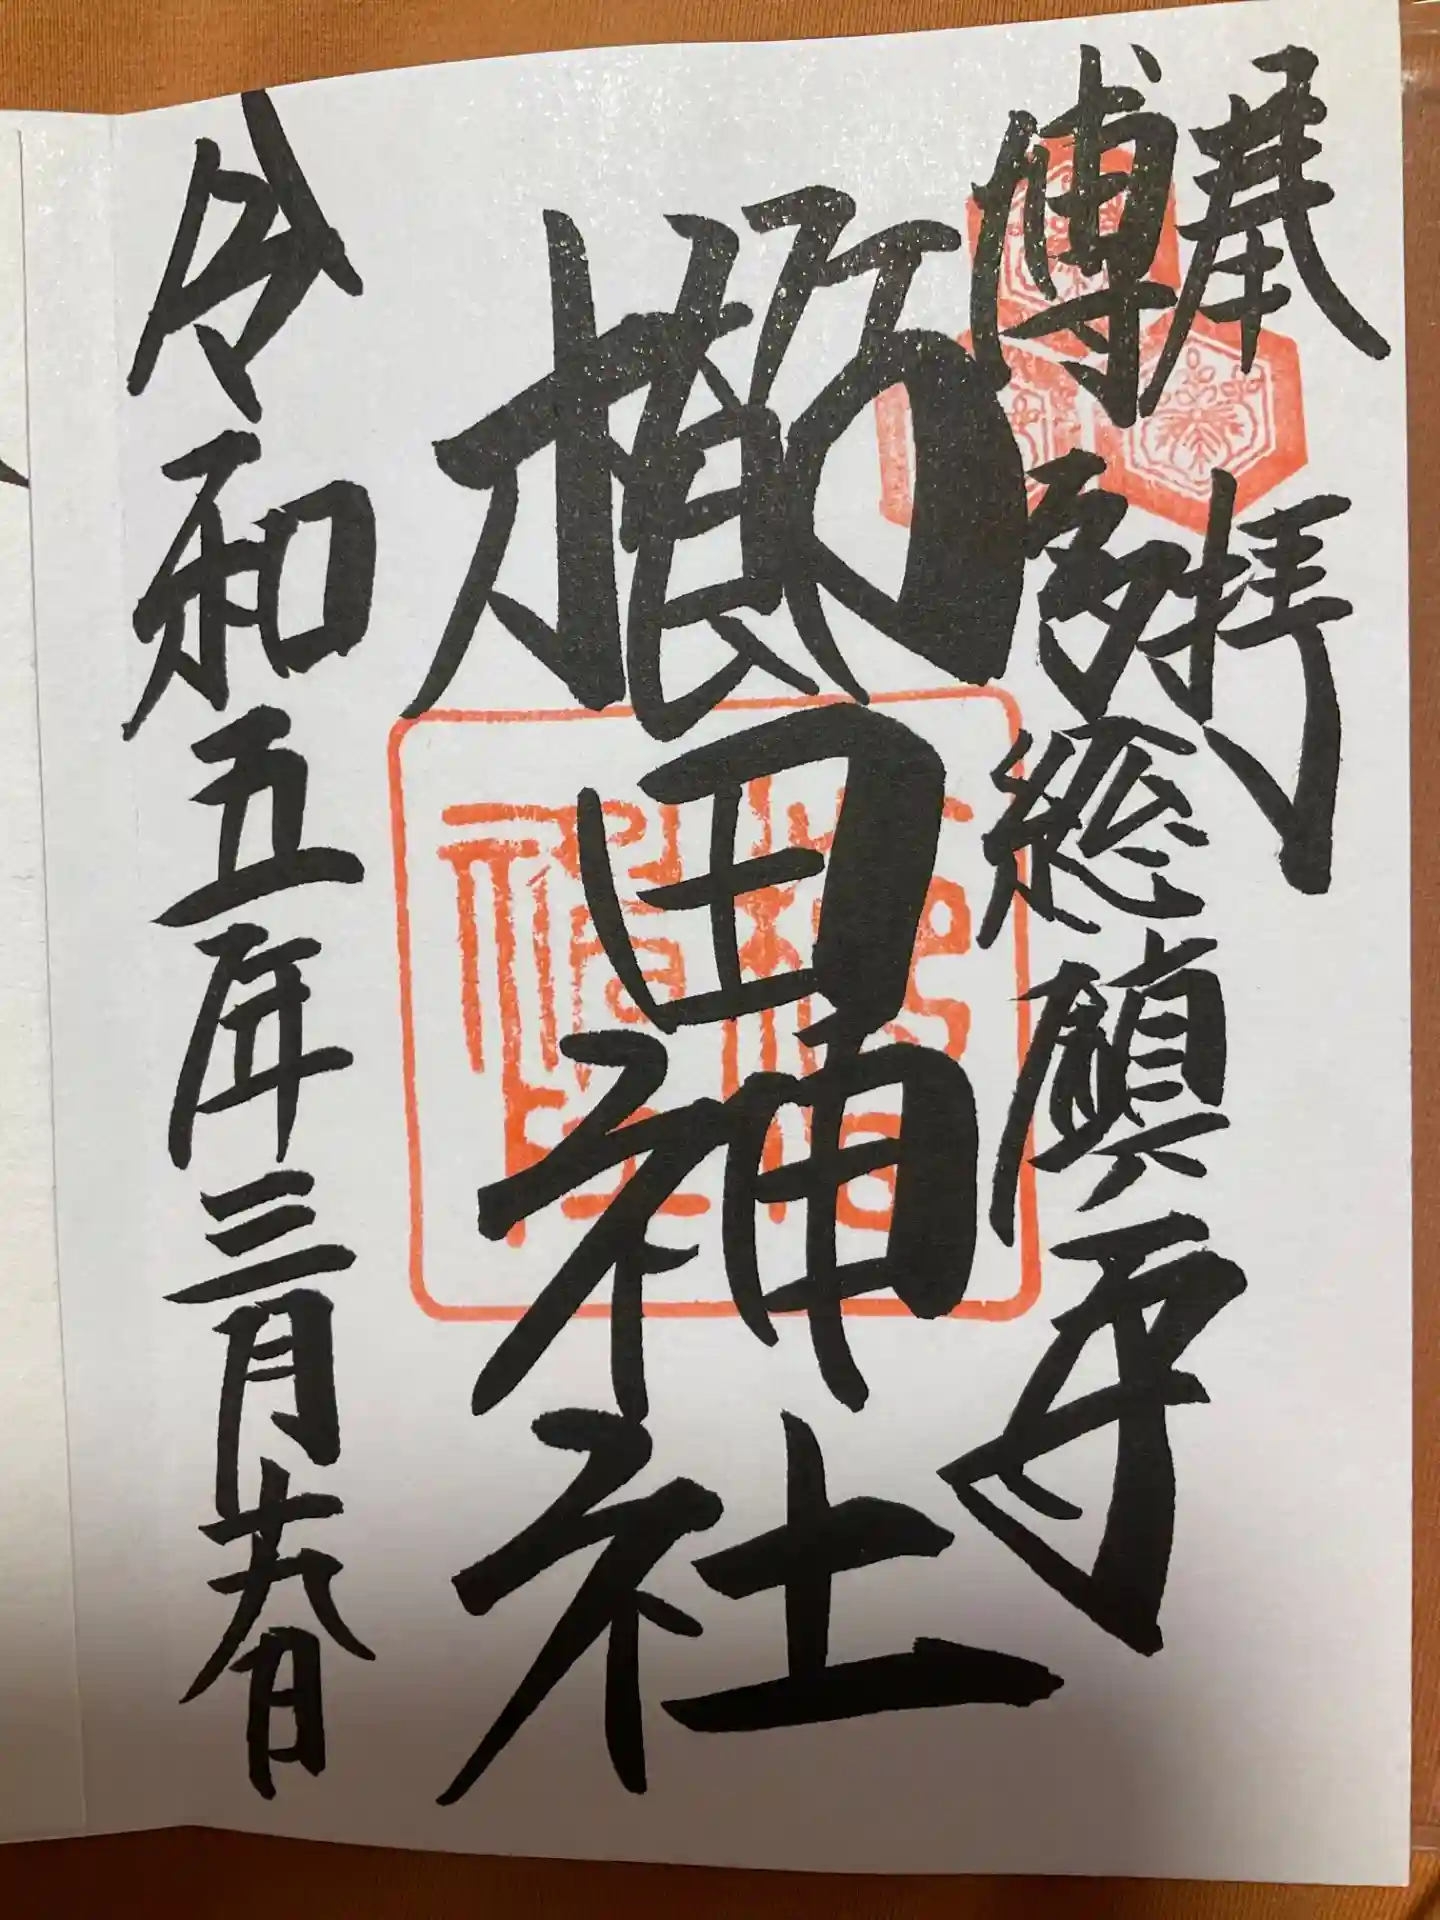 奉拝
博多総鎮守
櫛田神社
令和五年三月十九日